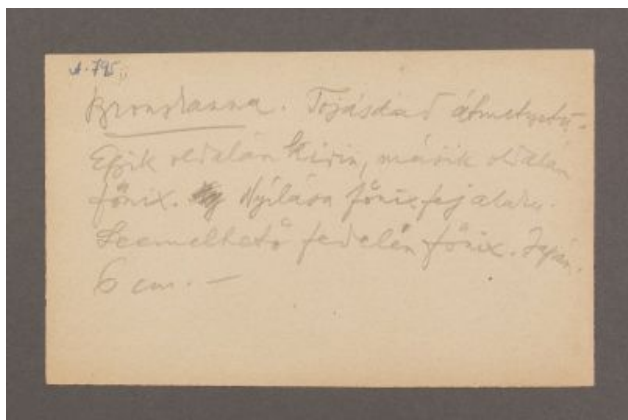 A. 795
Bronzkanna. Tojásdad átmetszetű.
Egyik oldalán Kirin, másik oldalán
főnix. Nyílása főnixfej alakú.
Leemelhető fedelén főnix. Japán.
6 cm. —